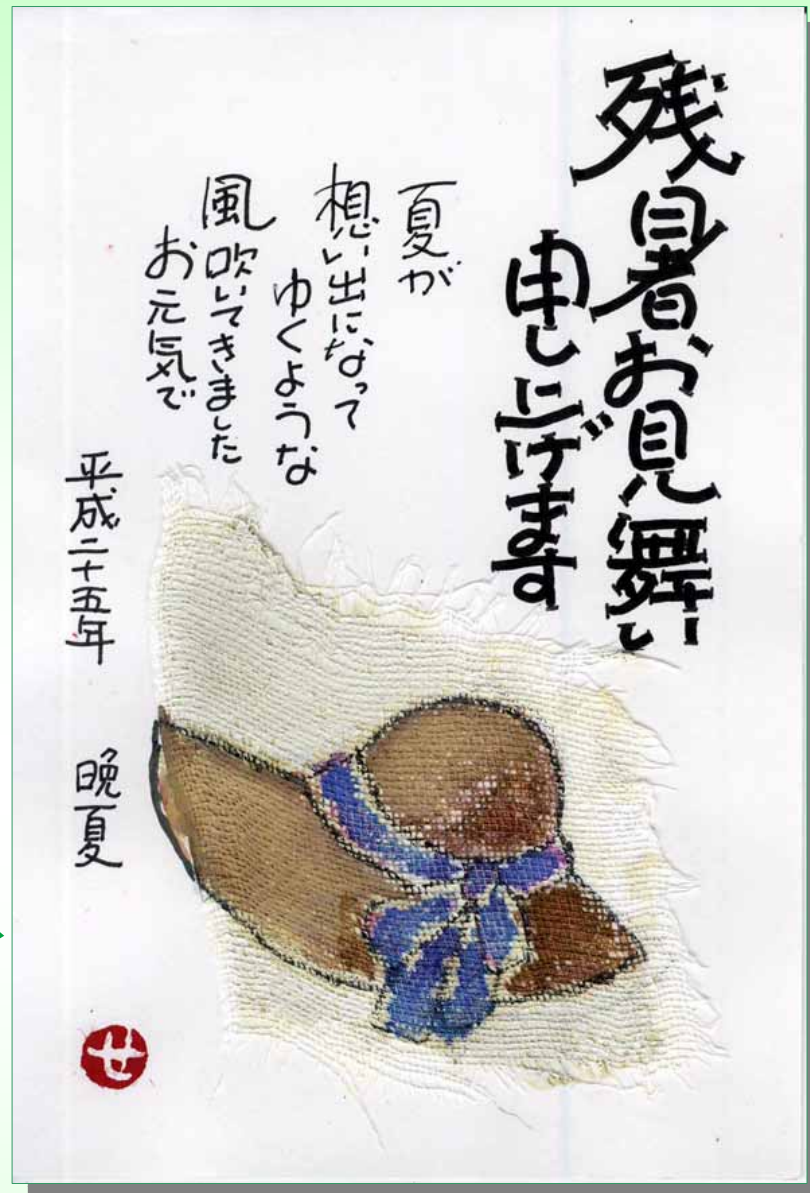 残暑お見舞い
申し上げます
夏が
想い出になって
ゆくような
風吹いてきました
お元気で
平成二十五年 晩夏
せ